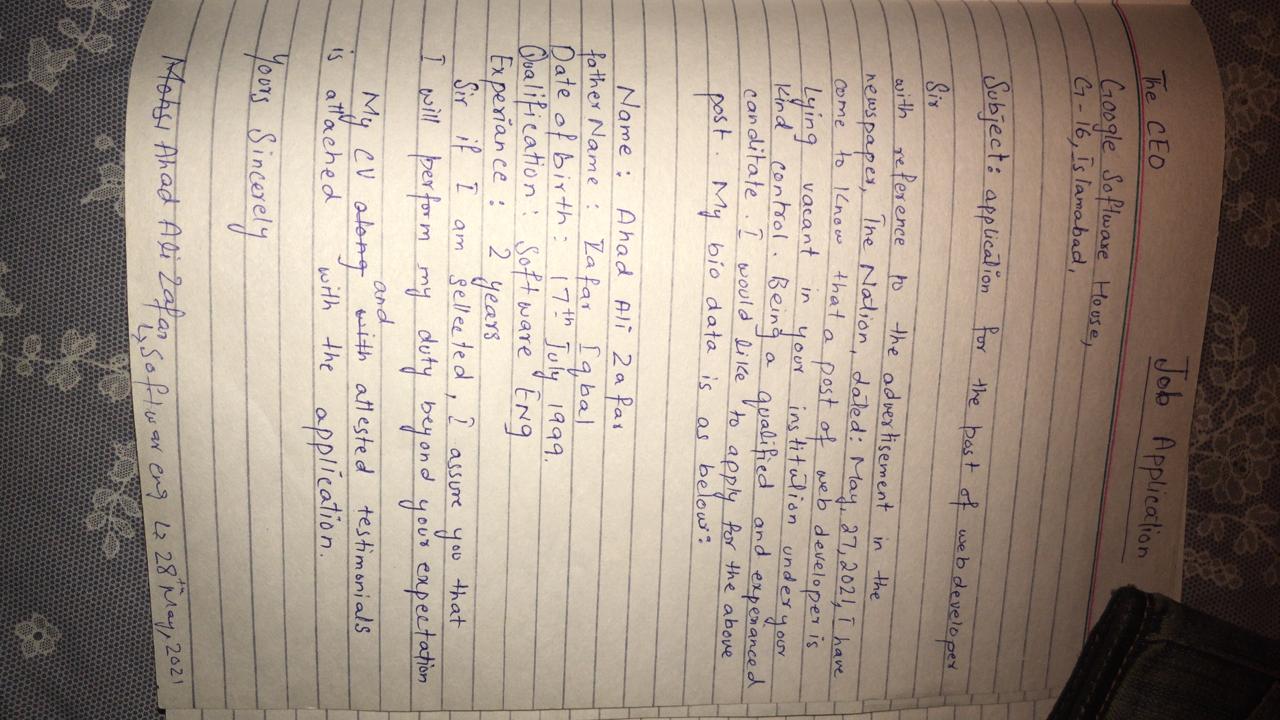 Job Application
The CEO
Google Software House,
G-16, Islamabad,
Subject: application for the post of web developer
Sir
with reference to the advertisement in the
newspaper, The Nation, dated: May, 27, 2021, I have
come to know that a post of web developer is
Lying vacant in your institution under your
kind control. Being a qualified and experianced
canditate. I would like to apply for the above
post. My bio data is as below:
Name: Ahad Ali Zafar
father Name: Zafar Iqbal
Date of birth: 17th July 1999.
Qualification: Software Eng
Experiance: 2 years
Sir if I am sellected, I assure you that
I will perform my duty beyond your expectation
and
My CV along with attested testimonials
is attached with the application.
Yours Sincerely
Mohsi Ahad Ali Zafar
↳ Softwar eng ↳ 28th May, 2021